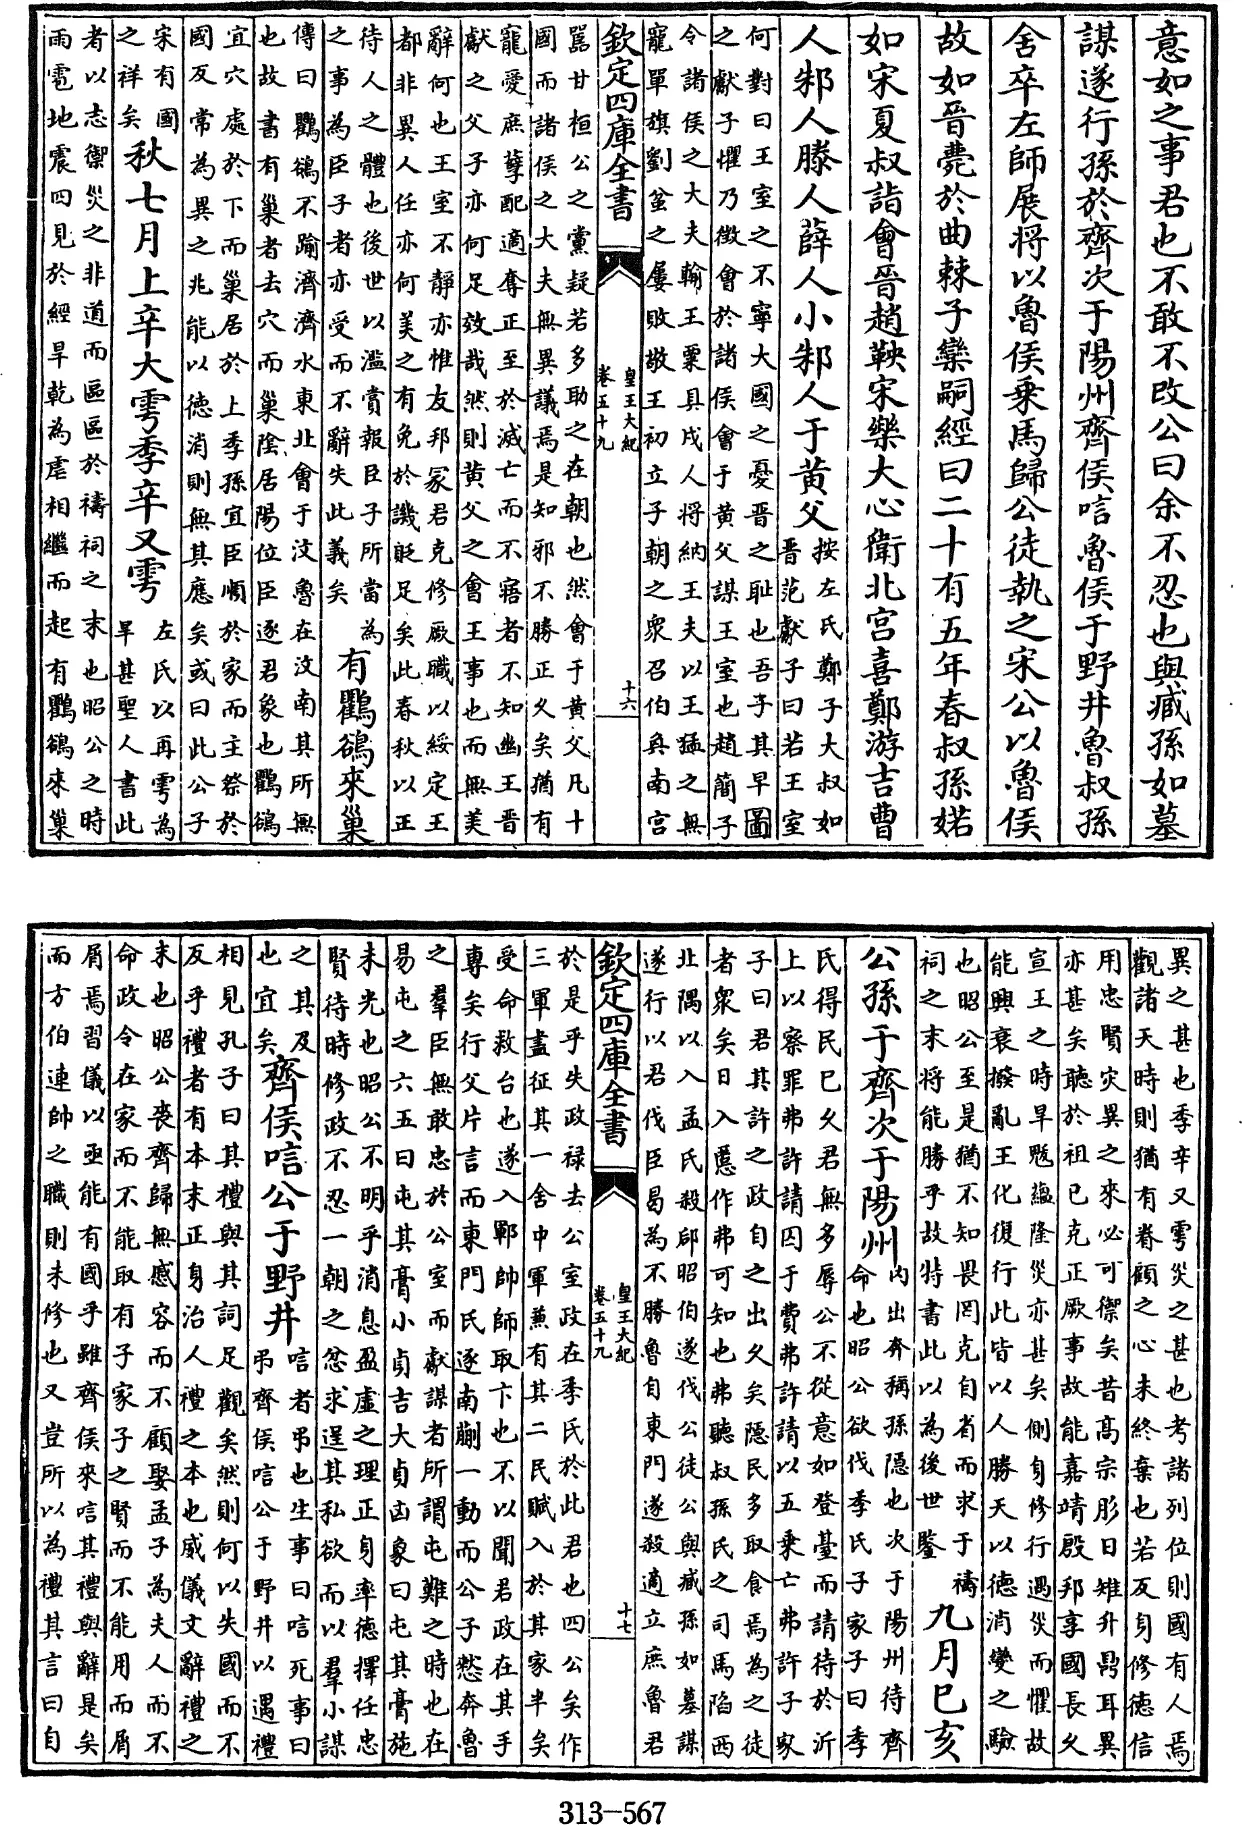 意如之事君也不敢不改公曰余不忍也與臧孫如墓
謀遂行孫於齊次于陽州齊侯唁魯侯于野井魯叔孫
舍卒左師展將以魯侯乗馬歸公徒執之宋公以魯侯
故如晉薨於曲棘子欒嗣經曰二十有五年春叔孫婼
如宋夏叔詣會晉趙鞅宋樂大心衛北宮喜鄭游吉曹
人邾人滕人薛人小邾人于黄父
按左氏鄭子大叔如
晉范獻子曰若王室
何對曰王室之不寧大國之憂晉之耻也吾子其早圖
之獻子懼乃徴會於諸侯會于黄父謀王室也趙簡子
令諸侯之大夫輸王粟具戍人將納王夫以王猛之無
寵單旗劉蚠之屢敗敬王初立子朝之衆召伯奐南宮
欽定四庫全書
皇王大紀
卷五十九
十六
嚚甘桓公之黨疑若多助之在朝也然會于黄父凡十
國而諸侯之大夫無異議焉是知邪不勝正乆矣猶有
寵愛庶孽配適奪正至於滅亡而不寤者不知幽王晉
獻之父子亦何足效哉然則黄父之會王事也而無美
辭何也王室不靜亦惟友邦冢君克修厥職以綏定王
都非異人任亦何美之有免於譏貶足矣此春秋以正
待人之體也後世以濫賞報臣子所當為
之事為臣子者亦受而不辭失此義矣
有鸜鵒來巢
傳曰鸜鵒不踰濟濟水東北會于汶魯在汶南其所無
也故書有巢者去穴而巢陰居陽位臣逐君象也鸜鵒
宜穴處於下而巢居於上季孫宜臣順於家而主祭於
國反常為異之兆能以徳消則無其應矣或曰此公子
宋有國
之祥矣
秋七月上辛大雩季辛又雩
左氏以再雩為
旱甚聖人書此
者以志禦災之非道而區區於禱祠之末也昭公之時
雨雹地震四見於經旱乾為虐相繼而起有鸜鵒來巢
異之甚也季辛又雩災之甚也考諸列位則國有人焉
觀諸天時則猶有眷顧之心未終棄也若反身修徳信
用忠賢災異之來必可禦矣昔髙宗肜日雉升鼎耳異
亦甚矣聽於祖已克正厥事故能嘉靖殷邦享國長乆
宣王之時旱魃蘊隆災亦甚矣側身修行遇災而懼故
能興衰撥亂王化復行此皆以人勝天以徳消變之驗
也昭公至是猶不知畏罔克自省而求于禱
祠之末將能勝乎故特書此以為後世鑒
九月己亥
公孫于齊次于陽州
内出奔稱孫隱也次于陽州待齊
命也昭公欲伐季氏子家子曰季
氏得民已乆君無多辱公不從意如登臺而請待於沂
上以察罪弗許請囚于費弗許請以五乗亡弗許子家
子曰君其許之政自之出乆矣隱民多取食焉為之徒
者衆矣日入慝作弗可知也弗聽叔孫氏之司馬陷西
北隅以入孟氏殺郈昭伯遂伐公徒公與臧孫如墓謀
遂行以君伐臣曷為不勝魯自東門遂殺適立庶魯君
欽定四庫全書
皇王大紀
卷五十九
十七
於是乎失政禄去公室政在季氏於此君也四公矣作
三軍盡征其一舍中軍兼有其二民賦入於其家半矣
受命救台也遂入鄆帥師取卞也不以聞君政在其手
專矣行父片言而東門氏逐南蒯一動而公子憖奔魯
之羣臣無敢忠於公室而獻謀者所謂屯難之時也在
易屯之六五曰屯其膏小貞吉大貞凶象曰屯其膏施
未光也昭公不明乎消息盈虚之理正身率徳擇任忠
賢待時修政不忍一朝之忿求逞其私欲而以羣小謀
之其及
也宜矣
齊侯唁公于野井
唁者弔也生事曰唁死事曰
弔齊侯唁公于野井以遇禮
相見孔子曰其禮與其詞足觀矣然則何以失國而不
反乎禮者有本末正身治人禮之本也威儀文辭禮之
末也昭公喪齊歸無慼容而不顧娶孟子為夫人而不
命政令在家而不能取有子家子之賢而不能用而屑
屑焉習儀以亟能有國乎雖齊侯來唁其禮與辭是矣
而方伯連帥之職則未修也又豈所以為禮其言曰自
313-567